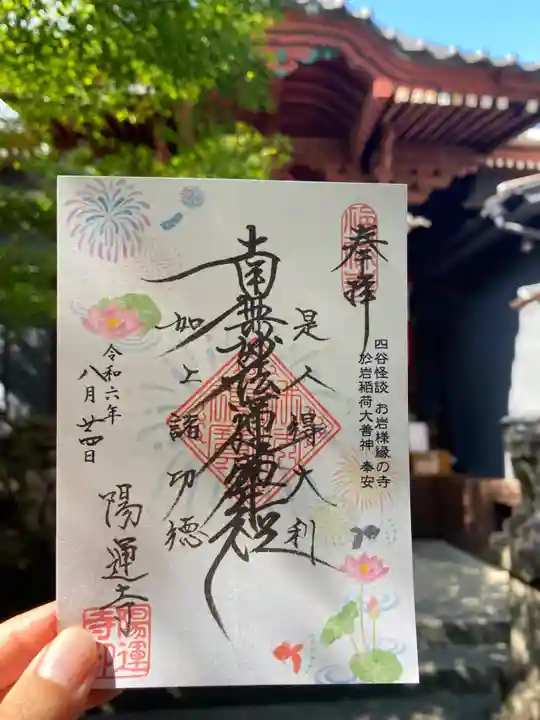 奉拝
四谷怪談 お岩様縁の寺
於岩稲荷大善神 奉安
是人得大利
南無妙法蓮華経
如上諸功徳
令和六年
八月廿四日
陽運寺
陽運
寺印